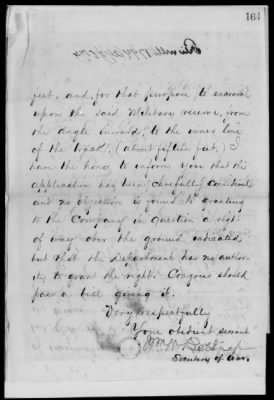 164
feet, and, for that purpose, to encroach
upon the said Military reserve, from
the angle inward, "to the inner line
of the track", (about fifteen feet,) I
have the honor to inform you that the
application has been carefully considered
and no objection is found to granting
to the Company in question a right
of way over the ground indicated
but that the Department has no author-
ity to grant the right. Congress should
pass a bill giving it.
Very respectfully
Your obedient servant
Wm W Belknap
Secretary of War.